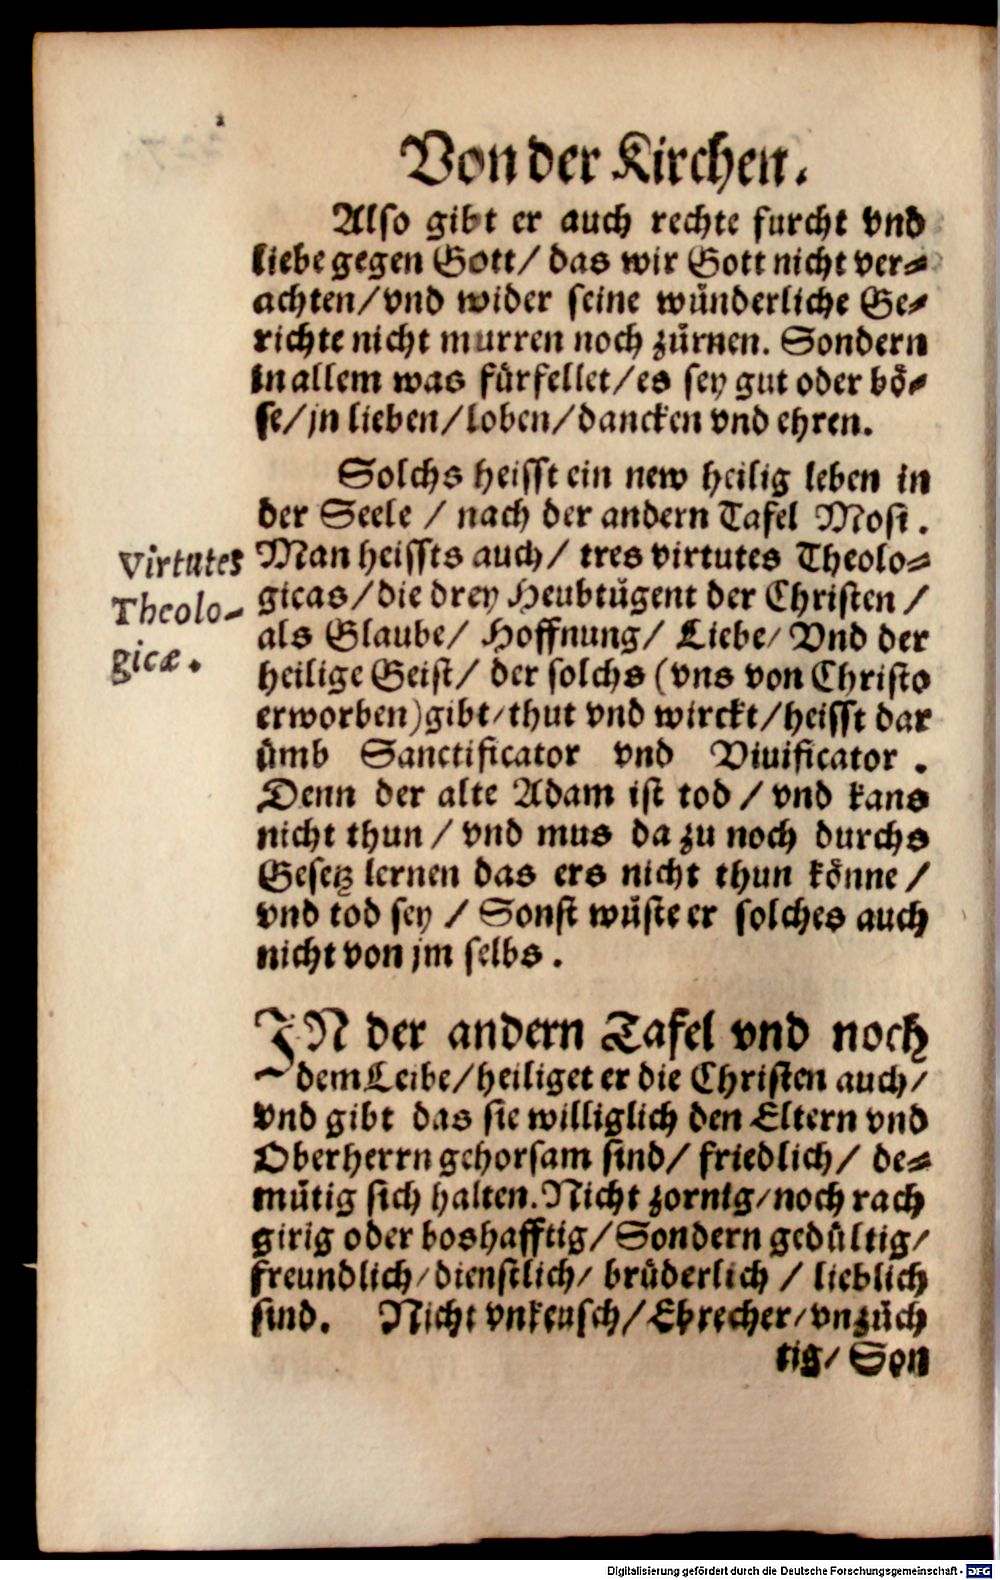 Von der Kirchen.
Also gibt er auch rechte furcht vnd
liebe gegen Gott/ das wir Gott nicht ver⸗
achten/ vnd wider seine wünderliche Ge⸗
richte nicht murren noch zürnen. Sondern
in allem was fürfellet/ es sey gut oder bö⸗
se/ jn lieben/ loben/ dancken vnd ehren.
Solchs heisst ein new heilig leben in
der Seele / nach der andern Tafel Mosi.
Virtutes
Theolo-
gicæ.
Man heissts auch/ tres virtutes Theolo⸗
gicas/ die drey Heubtügent der Christen /
als Glaube/ Hoffnung/ Liebe/ Vnd der
heilige Geist/ der solchs (vns von Christo
erworben) gibt/ thut vnd wirckt/ heisst dar
ümb Sanctificator vnd Viuificator .
Denn der alte Adam ist tod / vnd kans
nicht thun / vnd mus da zu noch durchs
Gesetz lernen das ers nicht thun könne /
vnd tod sey / Sonst wüste er solches auch
nicht von jm selbs .
IN der andern Tafel vnd noch
dem Leibe/ heiliget er die Christen auch/
vnd gibt das sie williglich den Eltern vnd
Oberherrn gehorsam sind/ friedlich/ de⸗
mütig sich halten. Nicht zornig/ noch rach
girig oder boshafftig/ Sondern gedültig/
freundlich/ dienstlich/ brüderlich / lieblich
sind. Nicht vnkeusch/ Ebrecher/ vnzüch
tig/ Son
Digitalisierung gefördert durch die Deutsche Forschungsgemeinschaft - DFG